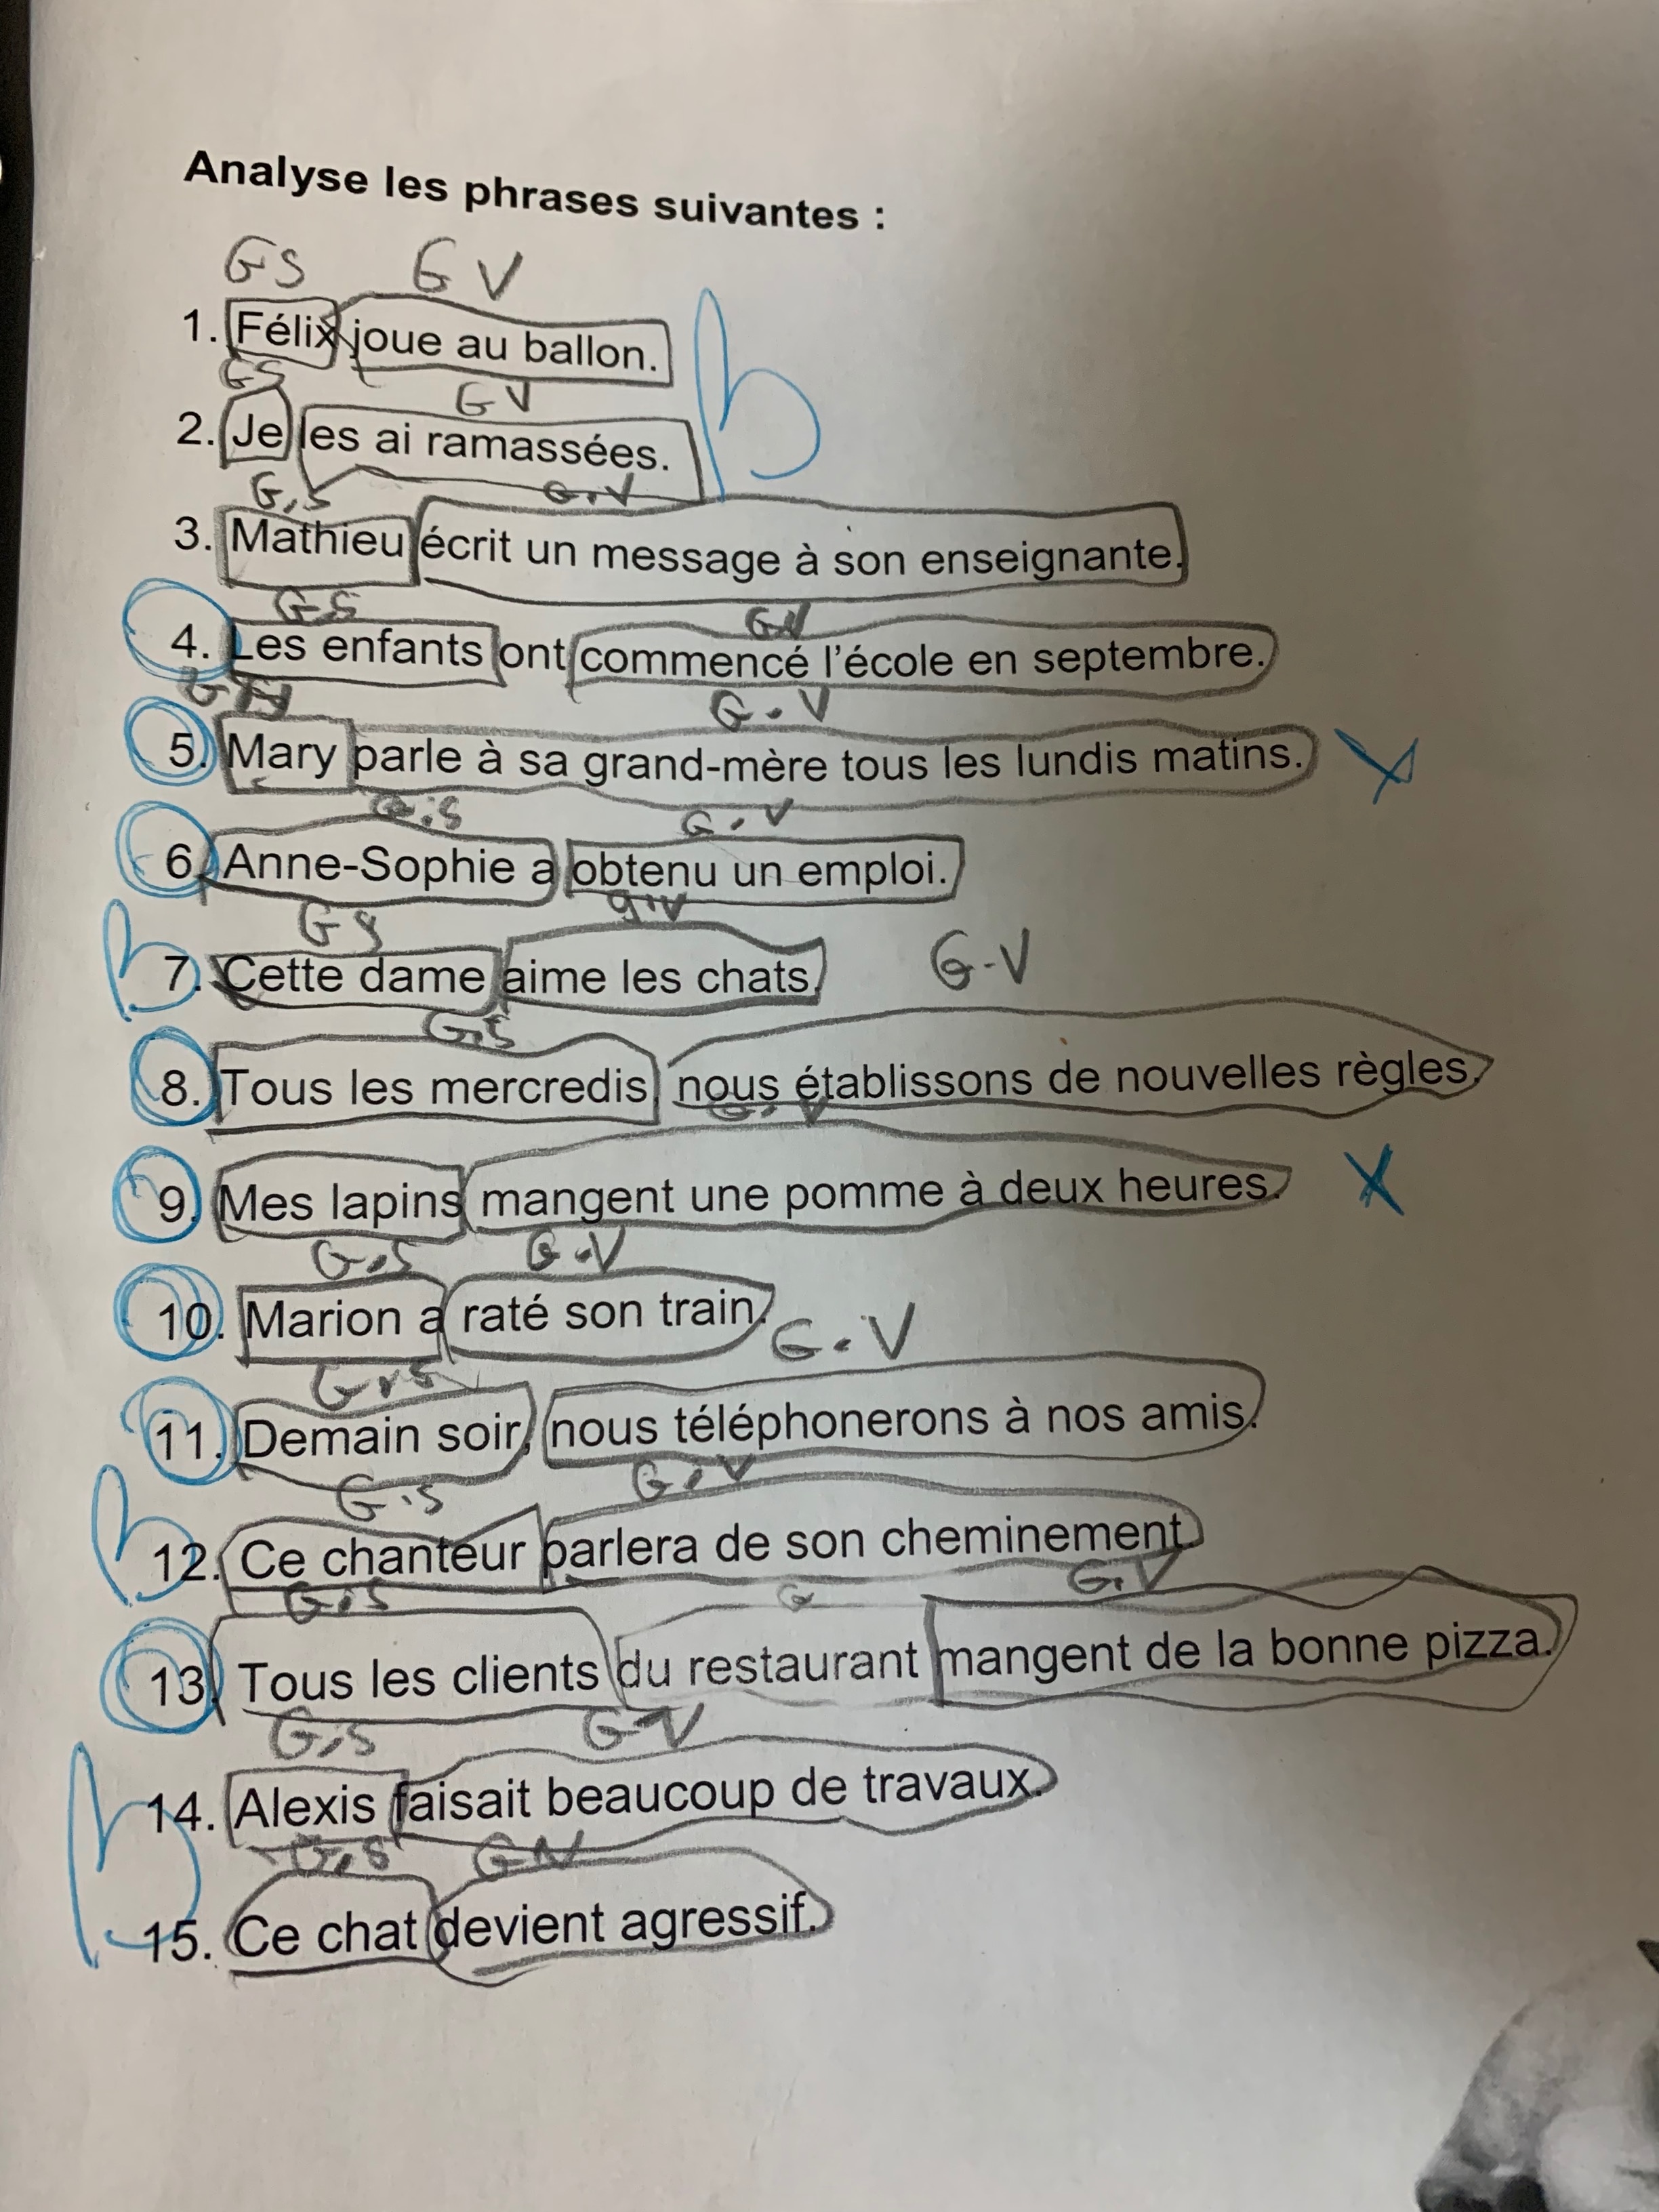 Analyse les phrases suivantes :
GS GV
1. Félix joue au ballon.
GS GV
2. Je les ai ramassées.
G.S G.V
3. Mathieu écrit un message à son enseignante.
GS GV
4. Les enfants ont commencé l'école en septembre.
G.V
5. Mary parle à sa grand-mère tous les lundis matins.
G.S G.V
6. Anne-Sophie a obtenu un emploi.
GS G.V
7. Cette dame aime les chats.
G.S G-V
8. Tous les mercredis nous établissons de nouvelles règles.
G.V
9. Mes lapins mangent une pomme à deux heures.
G.S G.V
10. Marion a raté son train.
G.S G.V
11. Demain soir, nous téléphonerons à nos amis.
G.S G.V
12. Ce chanteur parlera de son cheminement.
G.S G G.V
13. Tous les clients du restaurant mangent de la bonne pizza.
G.S GV
14. Alexis faisait beaucoup de travaux.
G.S GV
15. Ce chat devient agressif.